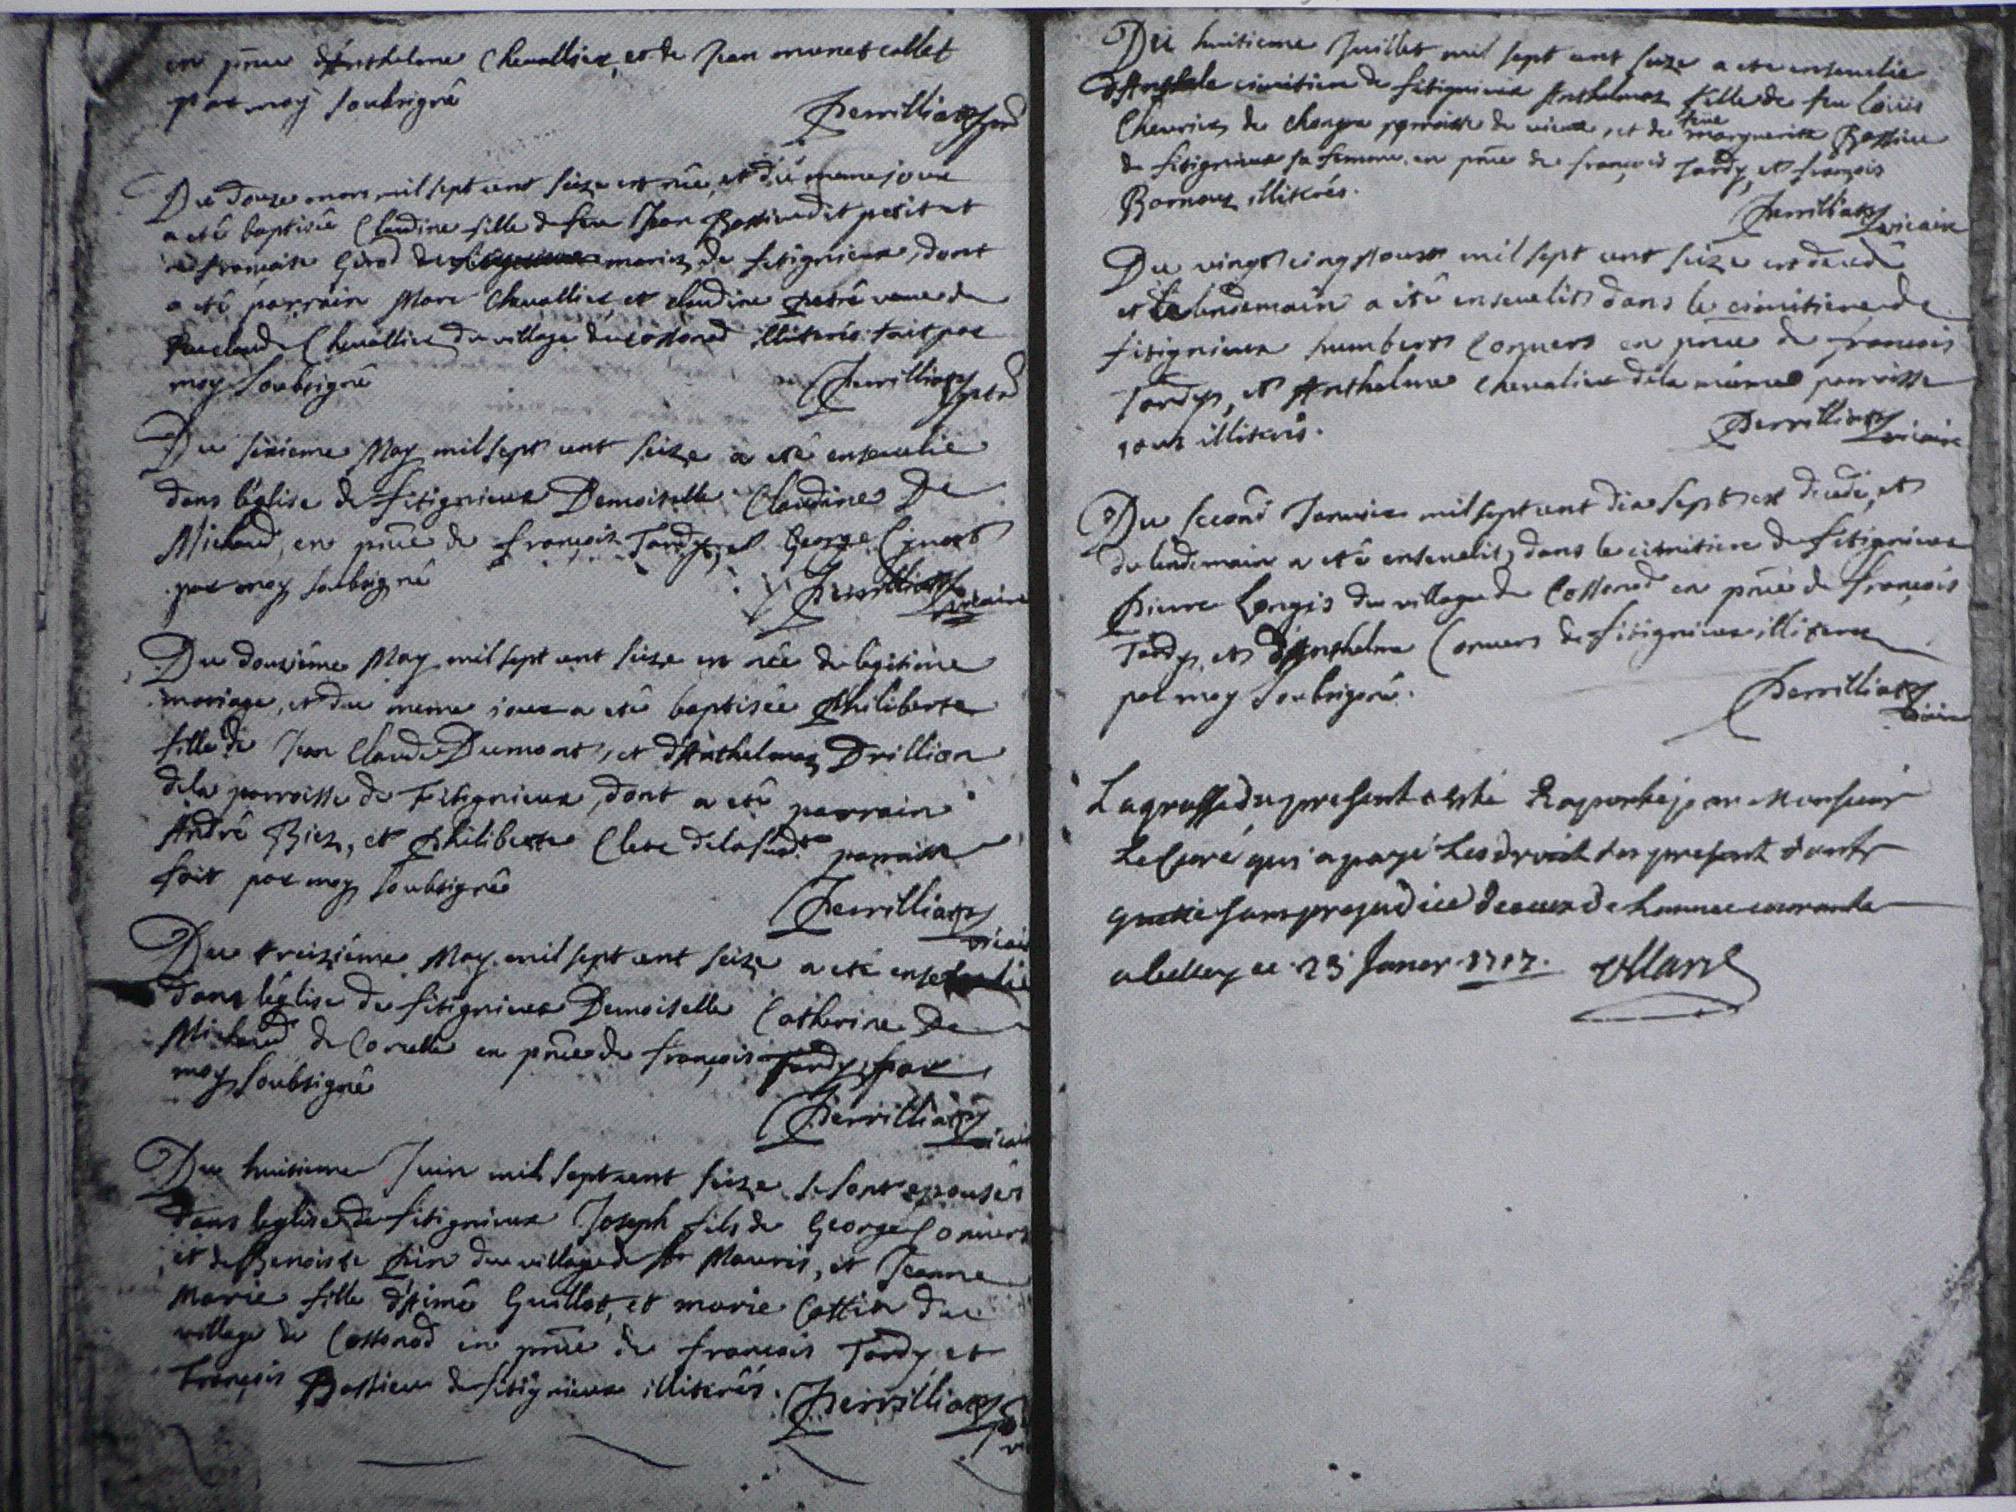 en pnce d'Anthelme Chevallier, et de Jean monet collet
par moy soubsigné
Perrilliat
Du douze mars mil sept cent seize est née, et du meme jour
a eté baptisée Claudine fille de feu Jean Bossieu dit petit et
de francoise Girod mariez de fitignieux, dont
a eté parrain Marc Chevallier, et claudine veuve de
feu claude Chevallier du village de cossonod illiterés fait par
moy soubsigné
Perrilliat
Du sixieme May mil sept cent seize a eté ensevelie
dans l'église de fitignieux Demoiselle Claudine De
Michaud, en pnce de françois Tardy, et George
par moy soubsigné
Perrilliat vicaire
Du douzième May mil sept cent seize est née de legitime
mariage, et du meme jour a eté baptisée philiberte
fille de Jean Claude Dumont, et d'Anthelmaz Drillion
de la parroisse de Fitignieux, dont a eté parrain
André Biez, et philiberte Clerc de la susdte parroisse
fait par moy soubsigné
Perrilliat vicaire
Du treizième May mil sept cent seize a eté ensevelie
dans l'église de fitignieux Demoiselle Catherine De
Michaud de Corcelle en pnce de françois Tardy, par
moy soubsigné
Perrilliat vicaire
Du huitieme Juin mil sept cent seize se sont epousés
dans l'eglise de fitignieux Joseph fils de George Convers
et de Benoiste pin du village de St Mauris, et Jeanne
Marie fille d'Aimé Guillot, et marie Cottin du
village de Cossonod en pnce de francois Tardy, et
françois Bossieu de fitignieux illiterés.
Perrilliat
Du huitieme Juillet mil sept cent seize a eté ensevelie
cimitiere de fitignieux Anthelmaz fille de feu Loüis
Chevrier de parroisse de vieux, et de feue marguerite Bossieu
de fitignieux sa femme, en pnce de françois Tardy, et françois
illiterés.
Perrilliat vicaire
Du vingt cinq aoust mil sept cent seize est decedé
et le lendemain a été ensevelit dans le cimitiere de
fitignieux humbert Convers en pnce de francois
Tardy, et Anthelme Chevalier de la même parroisse
tous illiterés.
Perrilliat vicaire
Du second Janvier mil sept cent dix sept est decedé, et
du lendemain a eté ensevelit dans le cimitiere de fitignieux
pierre Longis du village de Cossonod en pnce de françois
Tardy, et d'Anthelme Convers de fitignieux illiterez
par moy soubsigné.
Perrilliat vicaire
La grosse du present a esté Raportée par Monsieur
Le Curé qui a payé Les droict du present dont
quitté sans prejudice de ceux de Lannee courante
a belley ce 23 Janer 1717.